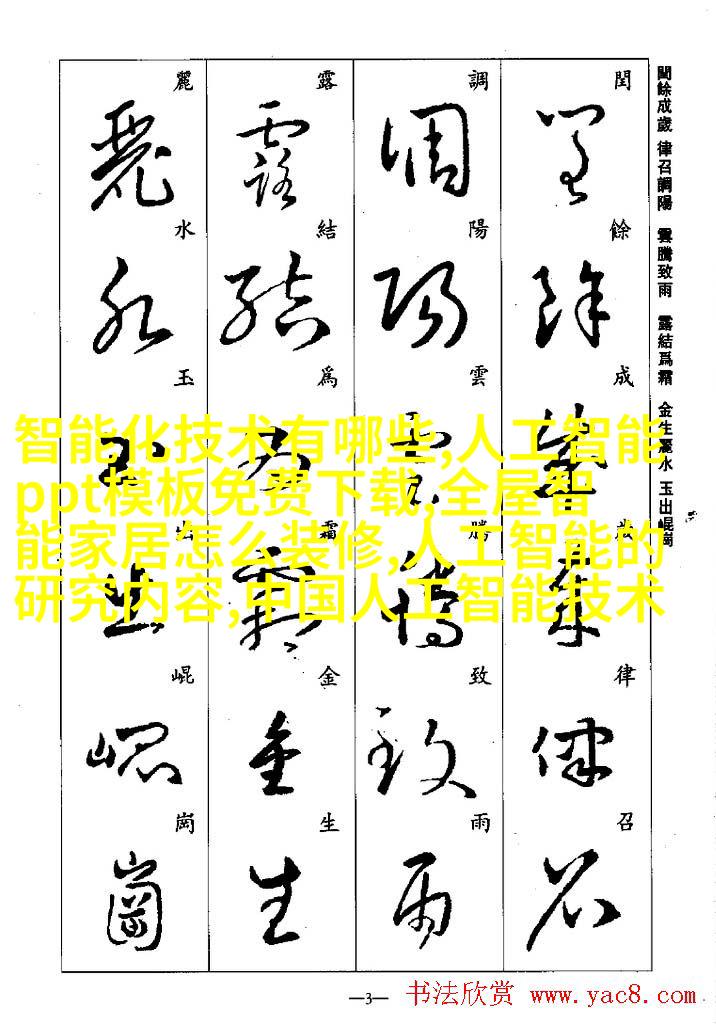 閏餘成歲 律召調陽 雲騰致雨 露結爲霜 金生麗水 玉出崐崗
閏餘成歲律召
調陽雲騰致雨
露結爲霜金生
麗水玉出崐崗
智能化技术有哪些,人工智能
ppt模板免费下载,全屋智
能家居怎么装修,人工智能的
研究内容,中国人工智能技术
—3—
书法欣赏 www.yac8.com